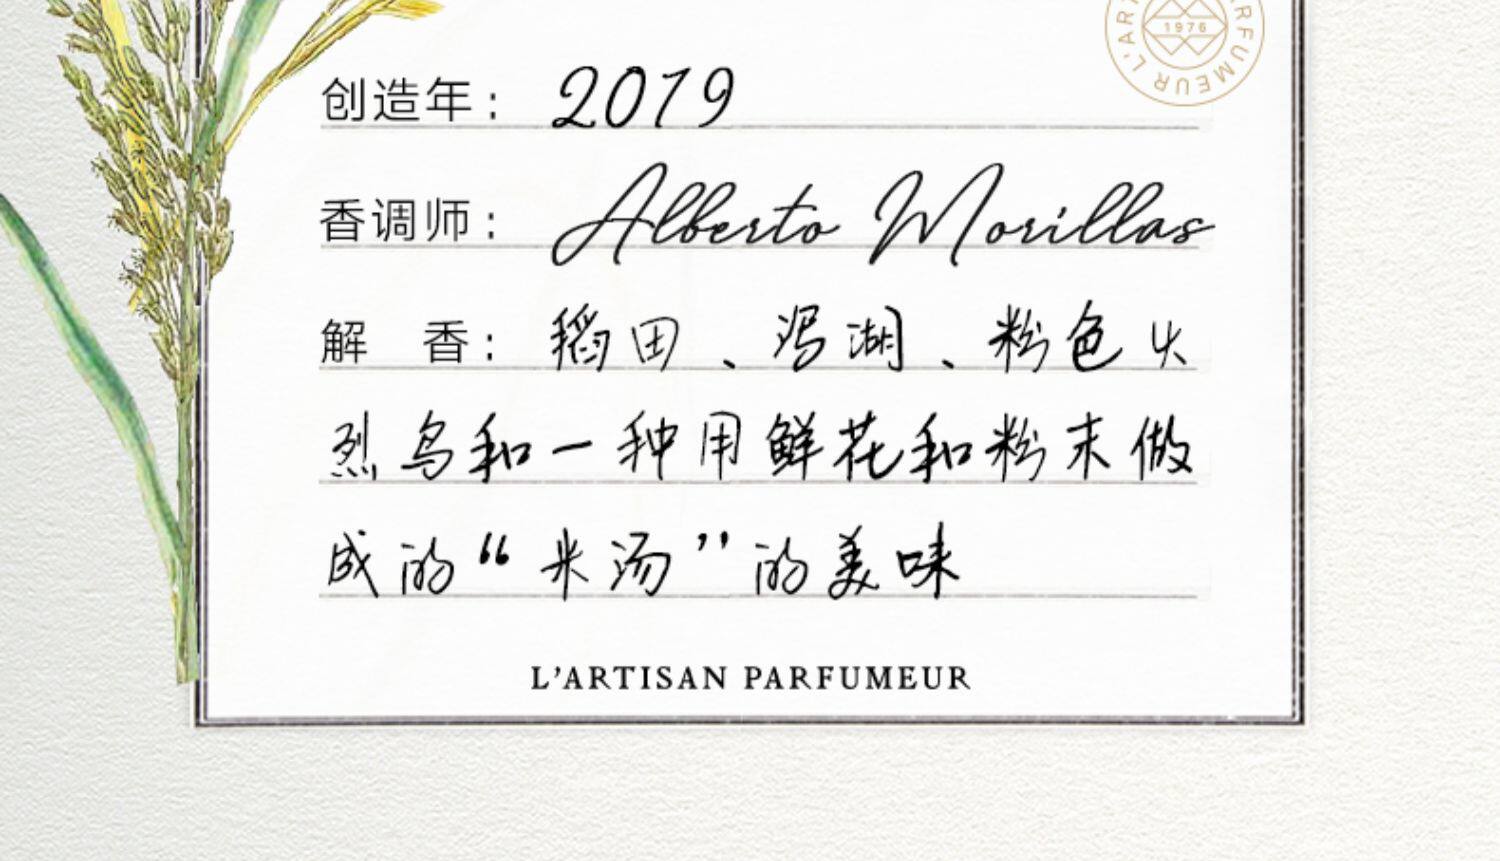 L'ARTISAN PARFUMEUR
1976
创造年：2019
香调师：Alberto Morillas
解 香：稻田、泻湖、粉色火
烈鸟和一种用鲜花和粉末做
成的“米汤”的美味
L'ARTISAN PARFUMEUR